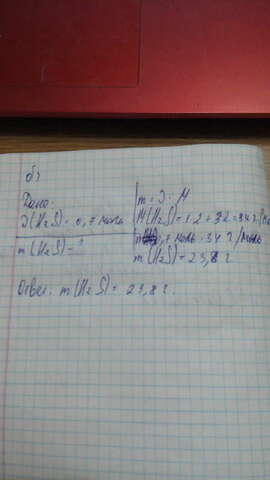 б)
Дано:
m = ν · M
ν(H₂S) = 0,7 моль
M(H₂S) = 1·2 + 32 = 34 г/мо
m(H₂S) = ?
0,7 моль · 34 г/моль
m(H₂S) = 23,8 г
Ответ: m(H₂S) = 23,8 г.